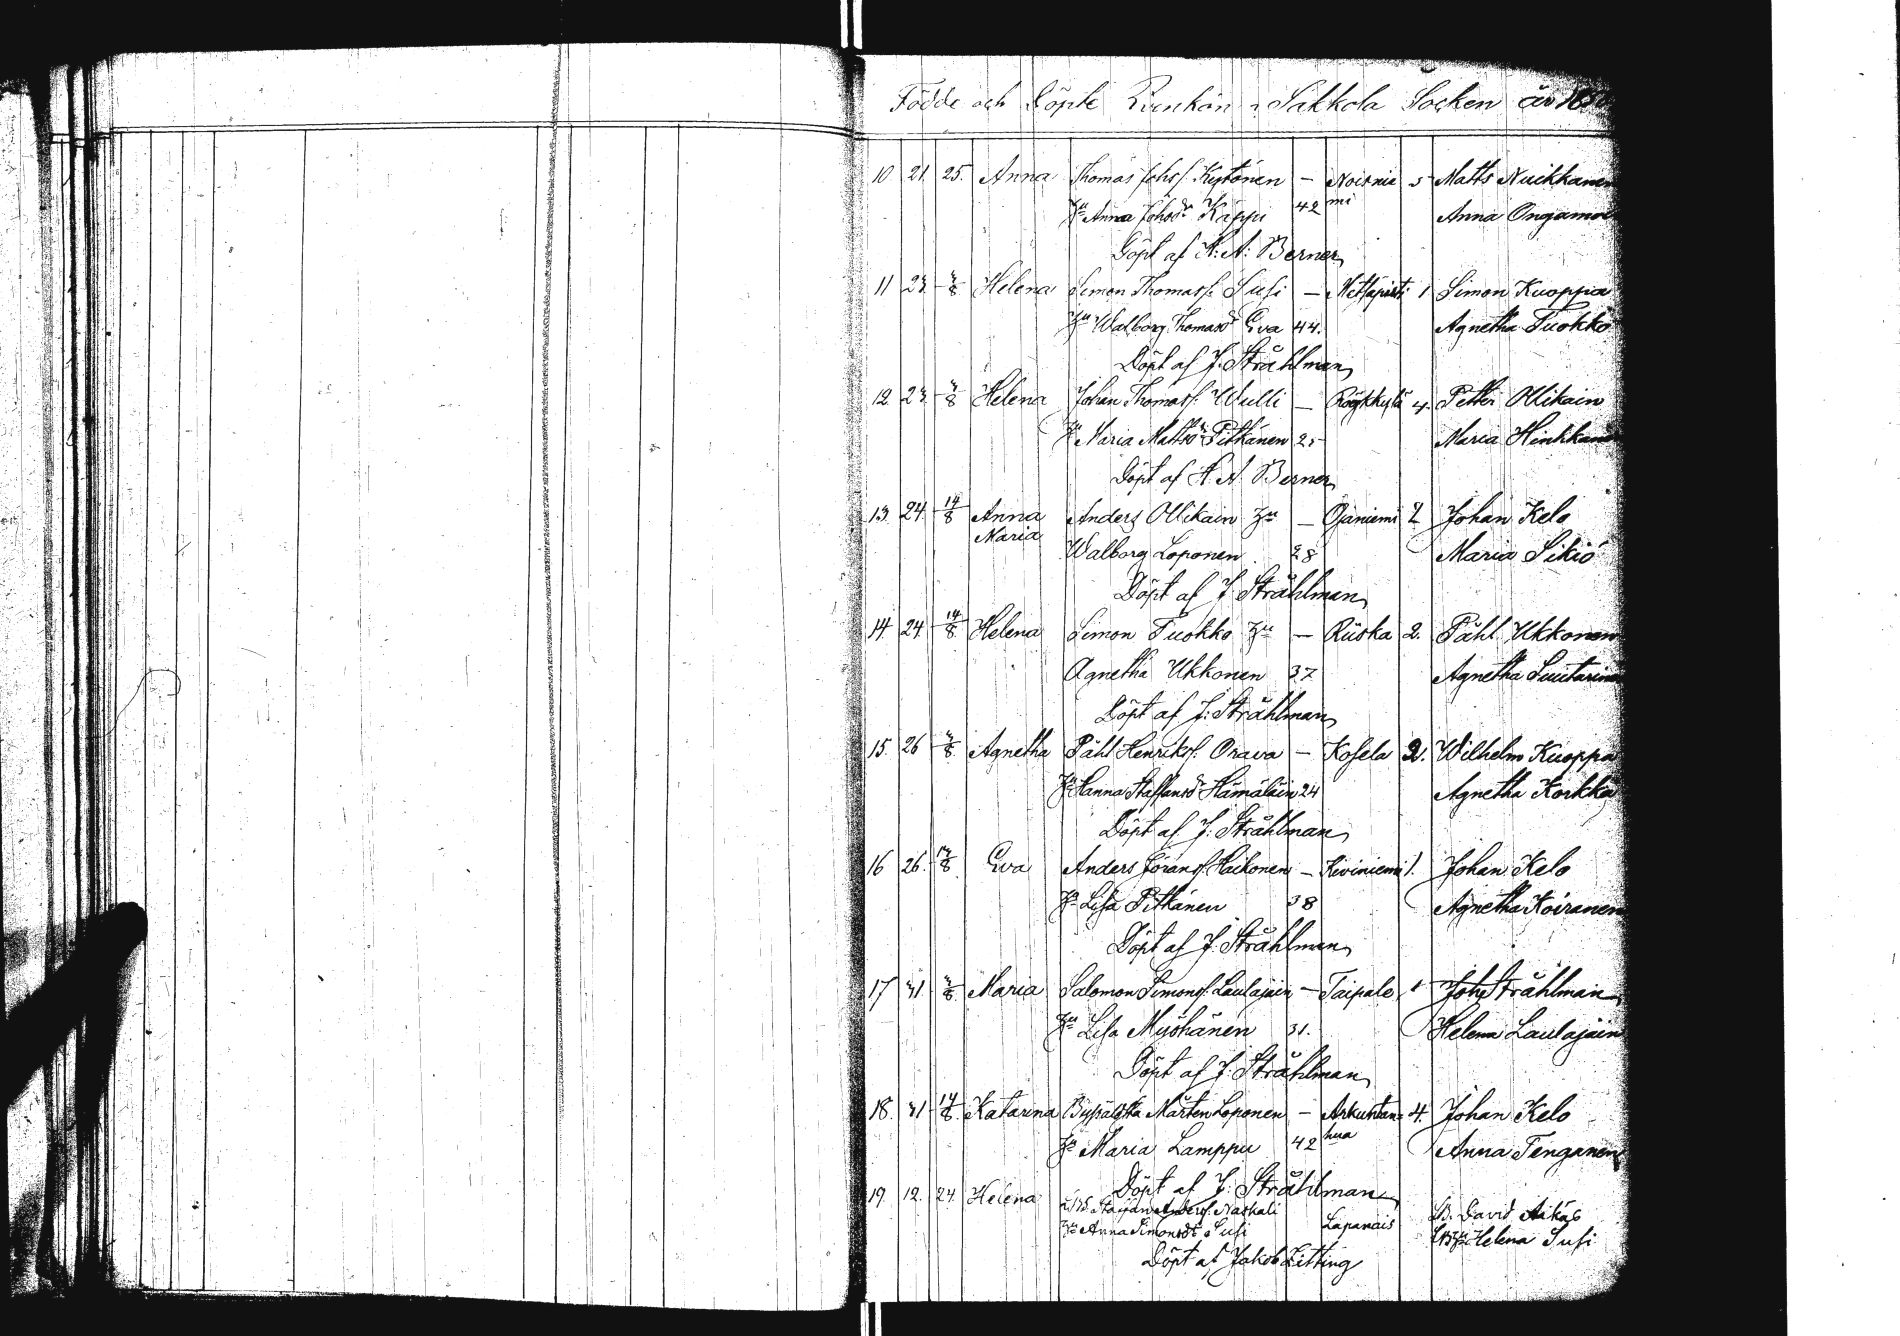 Födde och Döpte Qvinkön i Sakkola Socken år
10 21. 25. Anna Thomas Johsf. Kytönen – Noisnie 5 Matts Nuikkanen
Hu Anna Johsdr Käppi 42 mi Anna Ongamo
Döpt af K. A. Berner
11 23. 3/8 Helena Simon Thomasf. Susi – Metsäpirti 1 Simon Kuoppa
Hu Walborg Thomasdr Eva 44. Agnetha Tuokko
Döpt af J. Stråhlman
12. 23. 3/8 Helena Johan Thomasf. Wulli – Röykkylä 4. Petter Ollikain
Hu Maria Mattsdr Pitkänen 25 Maria Hinkkanen
Döpt af K. A. Berner
13. 24. 14/8 Anna Anders Ollikain Hu – Ojaniemi 2 Johan Kelo
Maria Walborg Loponen 28 Maria Sikiö
Döpt af J. Stråhlman
14. 24. 14/8 Helena Simon Tuokko Hu – Riiska 2. Påhl Ukkonen
Agnetha Ukkonen 37 Agnetha Suutarinen
Döpt af J. Stråhlman
15. 26 3/8 Agnetha Påhl Henriksf. Orava – Kosela 2. Wilhelm Kuoppa
Hu Hanna Staffansdr Hämäläin 24 Agnetha Korkka
Döpt af J. Stråhlman
16 26. 13/8 Eva Anders Göransf. Haikonen – Kiviniemi 1. Johan Kelo
Hu Lisa Pitkänen 38 Agnetha Koiranen
Döpt af J. Stråhlman
17 31. 3/8 Maria Salomon Simonsf. Laulajain – Taipale 1 Joh Stråhlman
Hu Lisa Myöhänen 31. Helena Laulajain
Döpt af J. Stråhlman
18. 31 14/8 Katarina Mårten Loponen – Arkuntan= 4. Johan Kelo
Hu Maria Lamppu 42 hua Anna Tenganen
Döpt af J. Stråhlman
19. 12. 24. Helena Staffan Andersf. Naskali Lapanais LB. David Aikäs
Hu Anna Simonsdr Susi Helena Susi
Döpt af Jakob Zitting